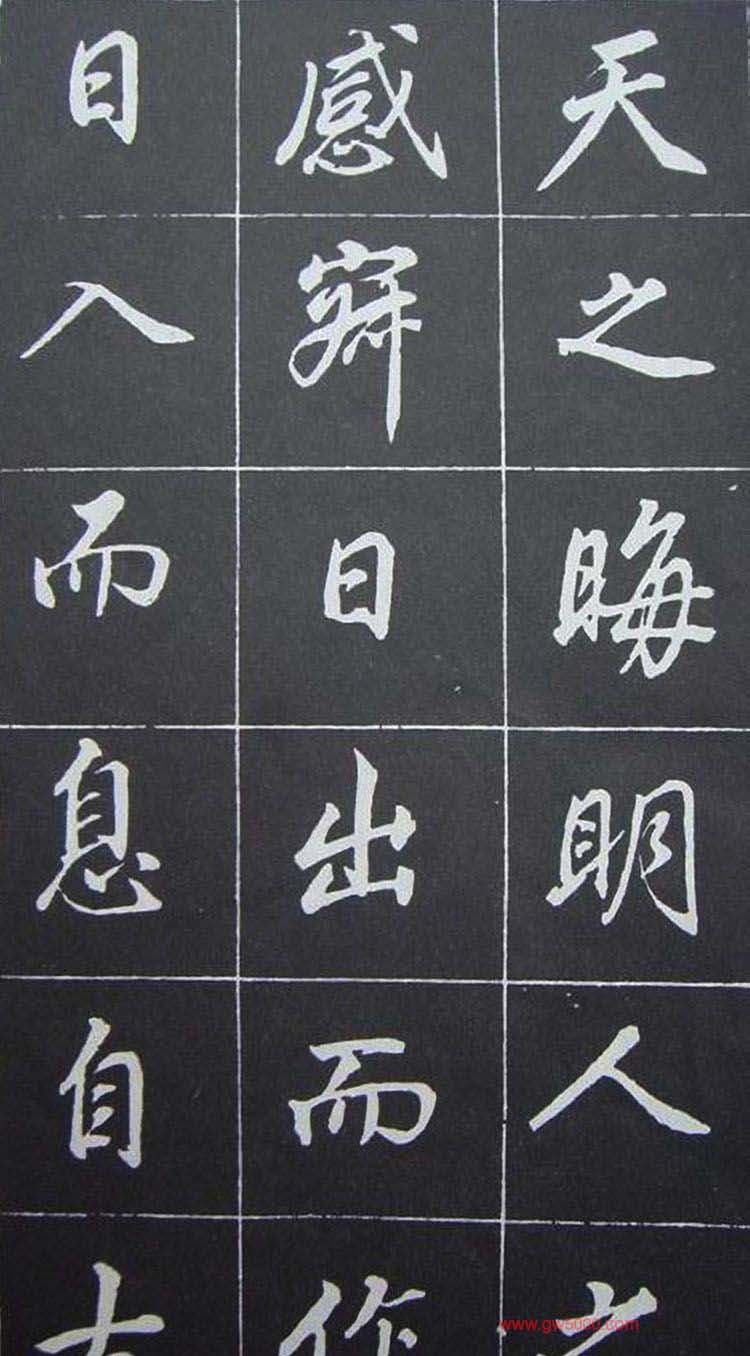 天之晦明人之
感日出而作
日入而息自
www.gw5000.com